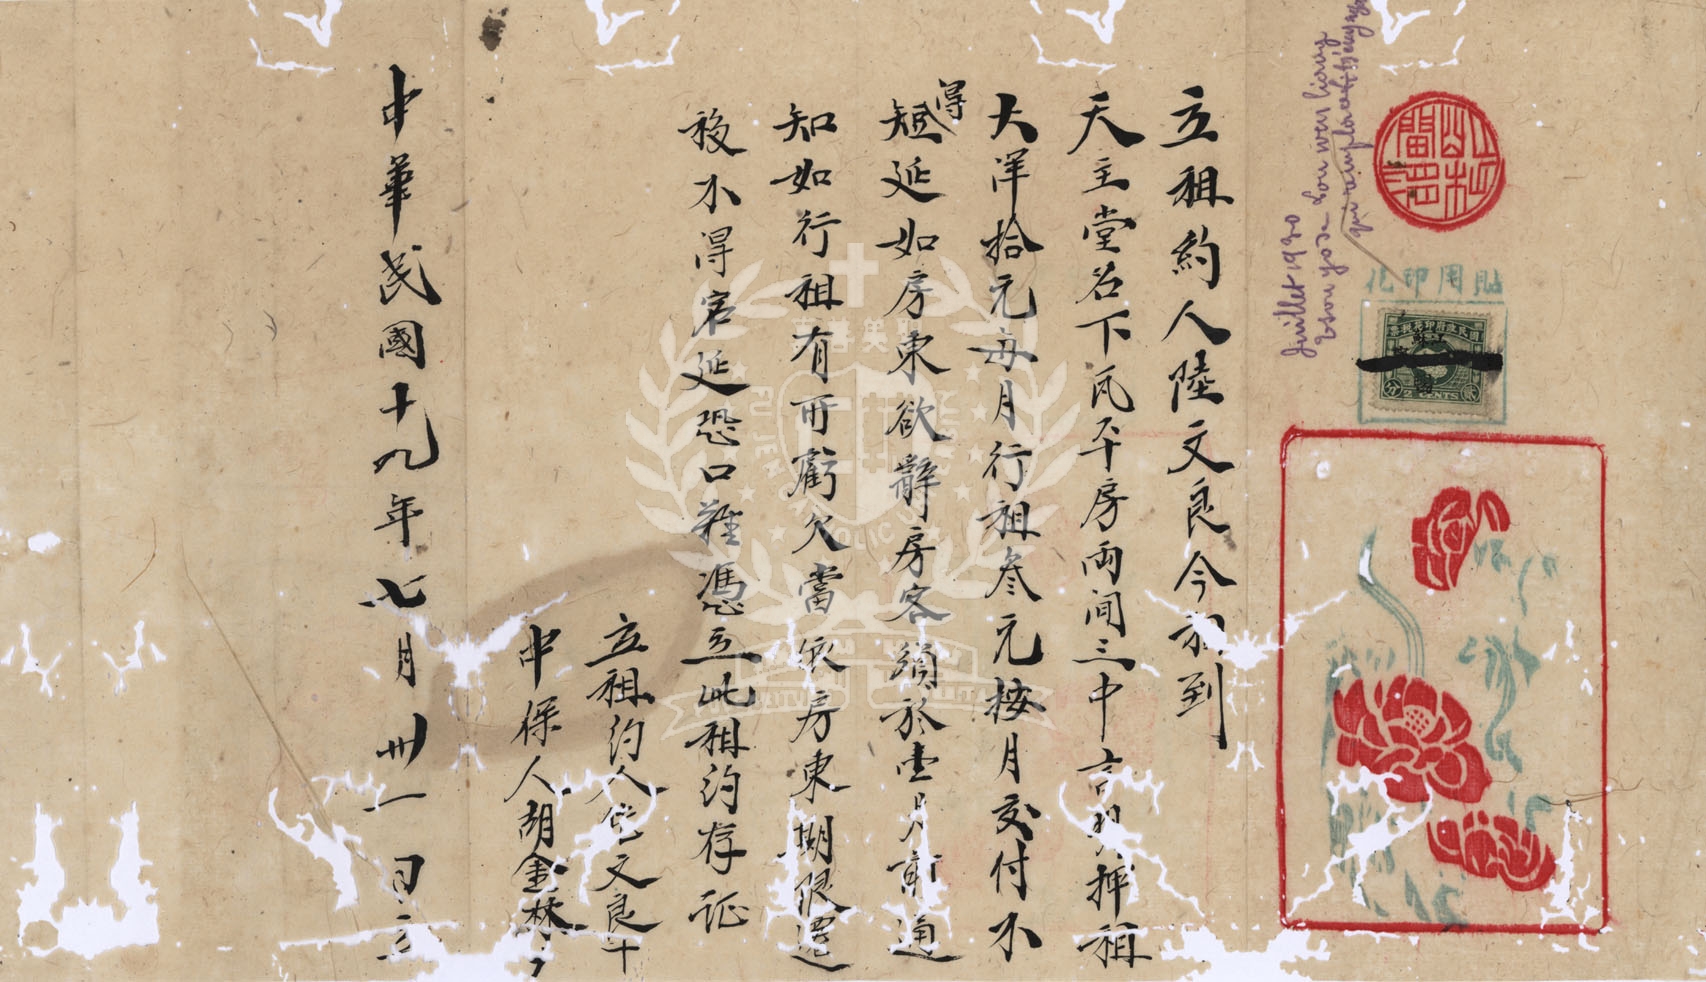 立租約人陸文良今租到
天主堂名下瓦平房兩间三中言明押租
大洋拾元每月行租叁元按月交付不
得
短延如房東欲辭房客須於壹月前通
知如行租有所虧欠當依房東期限遷
移不得宕延恐口難憑立此租约存证
立租约人陸文良十
中保人胡金林
中華民國十九年七月卅一日立
Juillet 1930
貼用印花
國民政府印花稅票
江蘇
2 CENTS
貳分